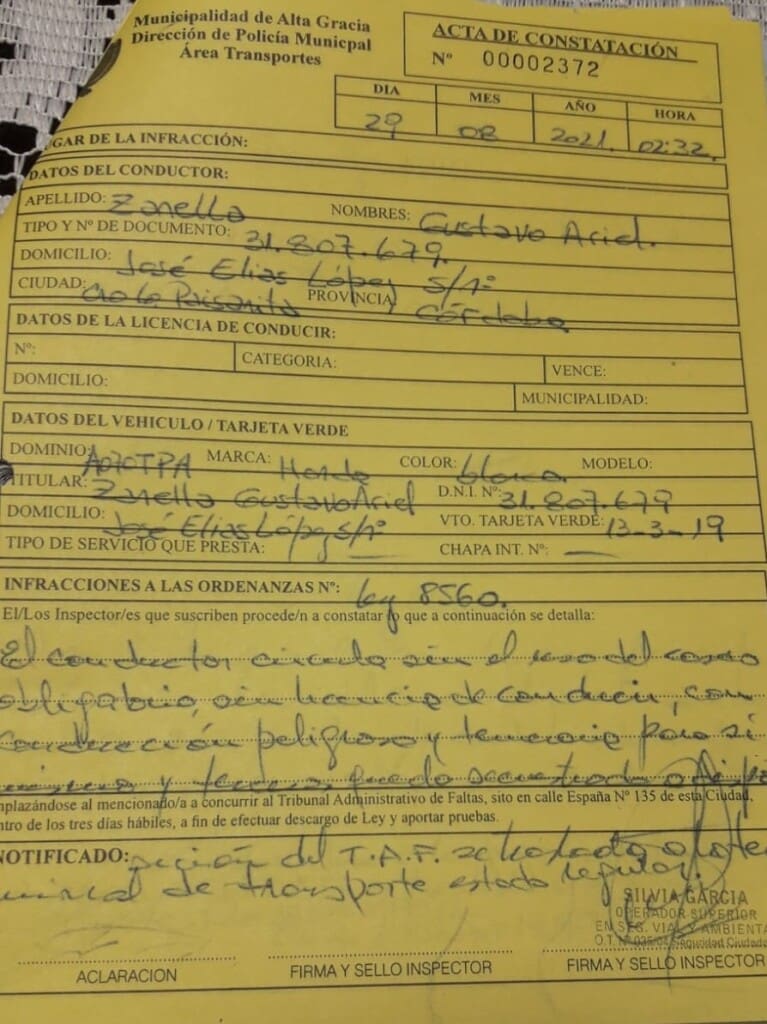 Municipalidad de Alta Gracia
Dirección de Policía Municpal
Área Transportes
ACTA DE CONSTATACIÓN
Nº 00002372
DIA MES AÑO HORA
29 08 2021. 02:32.
UGAR DE LA INFRACCIÓN:
DATOS DEL CONDUCTOR:
APELLIDO: Zanella NOMBRES: Gustavo Ariel.
TIPO Y Nº DE DOCUMENTO: 31.807.679.
DOMICILIO: José Elias López S/nº
CIUDAD: PROVINCIA Córdoba
DATOS DE LA LICENCIA DE CONDUCIR:
Nº: CATEGORIA: VENCE:
DOMICILIO: MUNICIPALIDAD:
DATOS DEL VEHICULO / TARJETA VERDE
DOMINIO: A070TPA MARCA: Honda COLOR: blanca. MODELO:
TITULAR: Zanella Gustavo Ariel D.N.I. Nº: 31.807.679
DOMICILIO: José Elias López s/nº VTO. TARJETA VERDE: 13-3-19
TIPO DE SERVICIO QUE PRESTA: — CHAPA INT. Nº: —
INFRACCIONES A LAS ORDENANZAS Nº: ley 8560.
El/Los Inspector/es que suscriben procede/n a constatar lo que a continuación se detalla:
El conductor circula sin el uso del casco
obligatorio, sin licencia de conducir, con
conducción peligrosa y temeraria para si
misma y terceros, queda secuestrado a dispo
mplazándose al mencionado/a a concurrir al Tribunal Administrativo de Faltas, sito en calle España Nº 135 de esta Ciudad,
ntro de los tres días hábiles, a fin de efectuar descargo de Ley y aportar pruebas.
NOTIFICADO: sición del T.A.F. se traslada a
de transporte estado regular.
SILVIA GARCIA
OPERADOR SUPERIOR
EN SEG. VIAL Y AMBIENTA
Seguridad Ciudada
ACLARACION FIRMA Y SELLO INSPECTOR FIRMA Y SELLO INSPECTOR